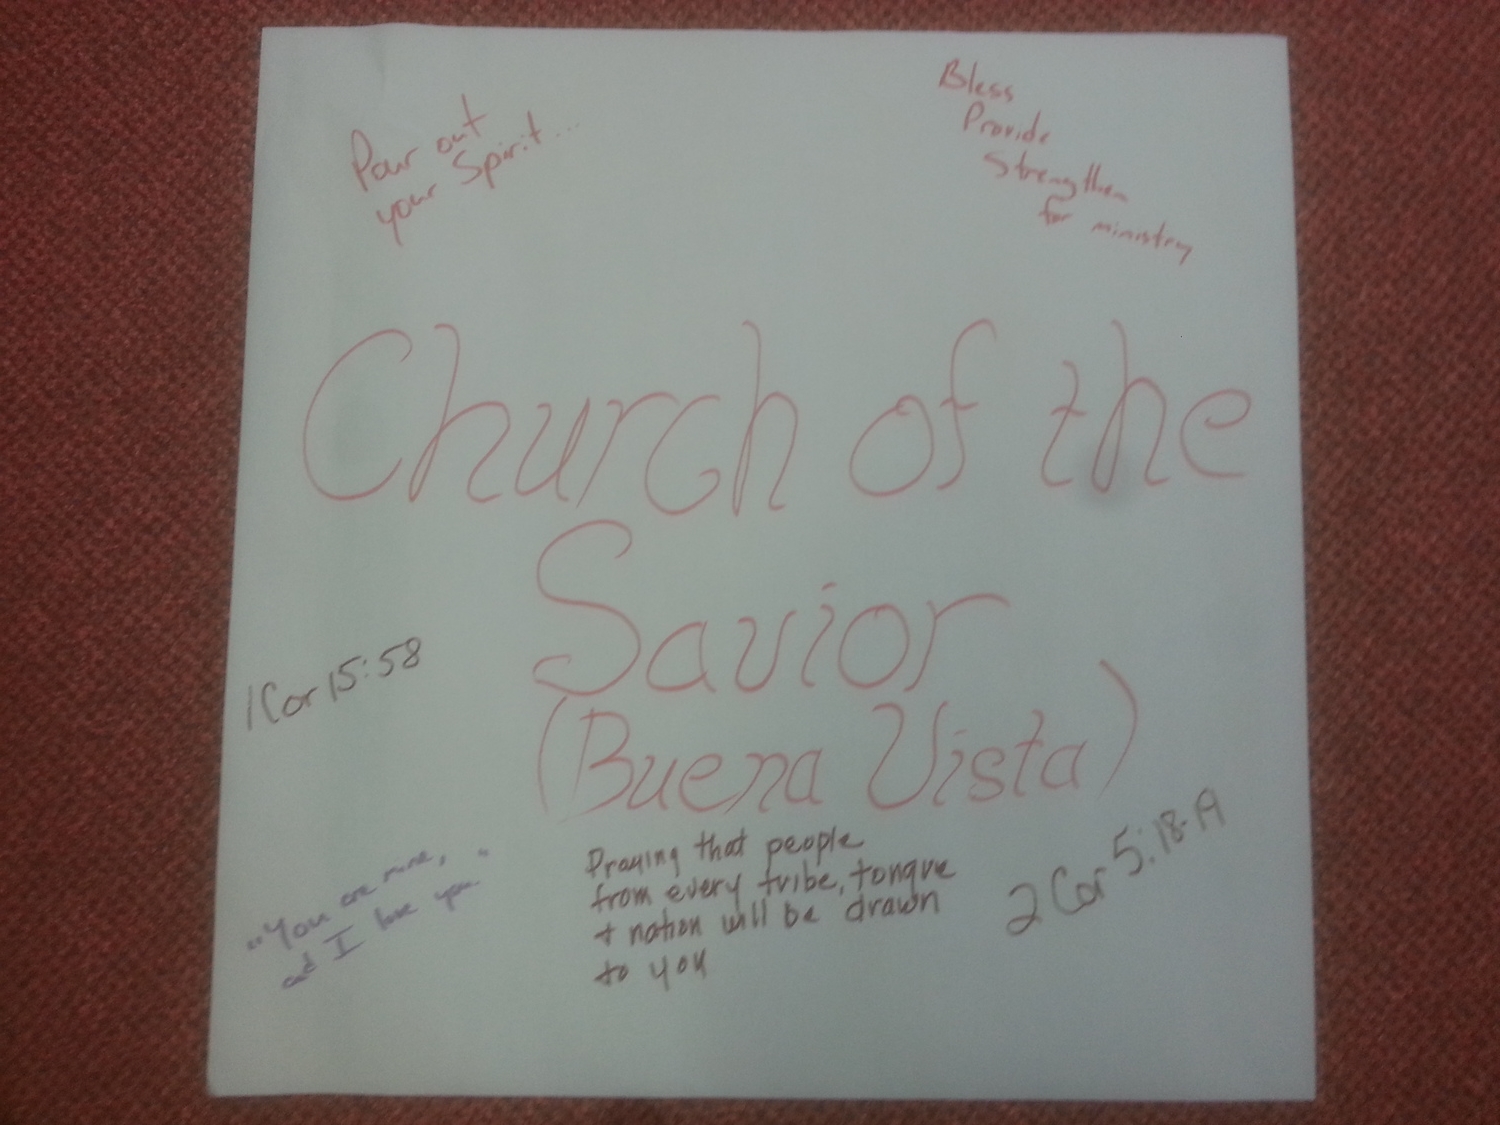 Pour out
your Spirit...
Bless
Provide
Strengthen
for ministry
Church of the
Savior
(Buena Vista)
1 Cor 15:58
"You are mine,
and I love you."
Praying that people
from every tribe, tongue
+ nation will be drawn
to you
2 Cor 5:18-19